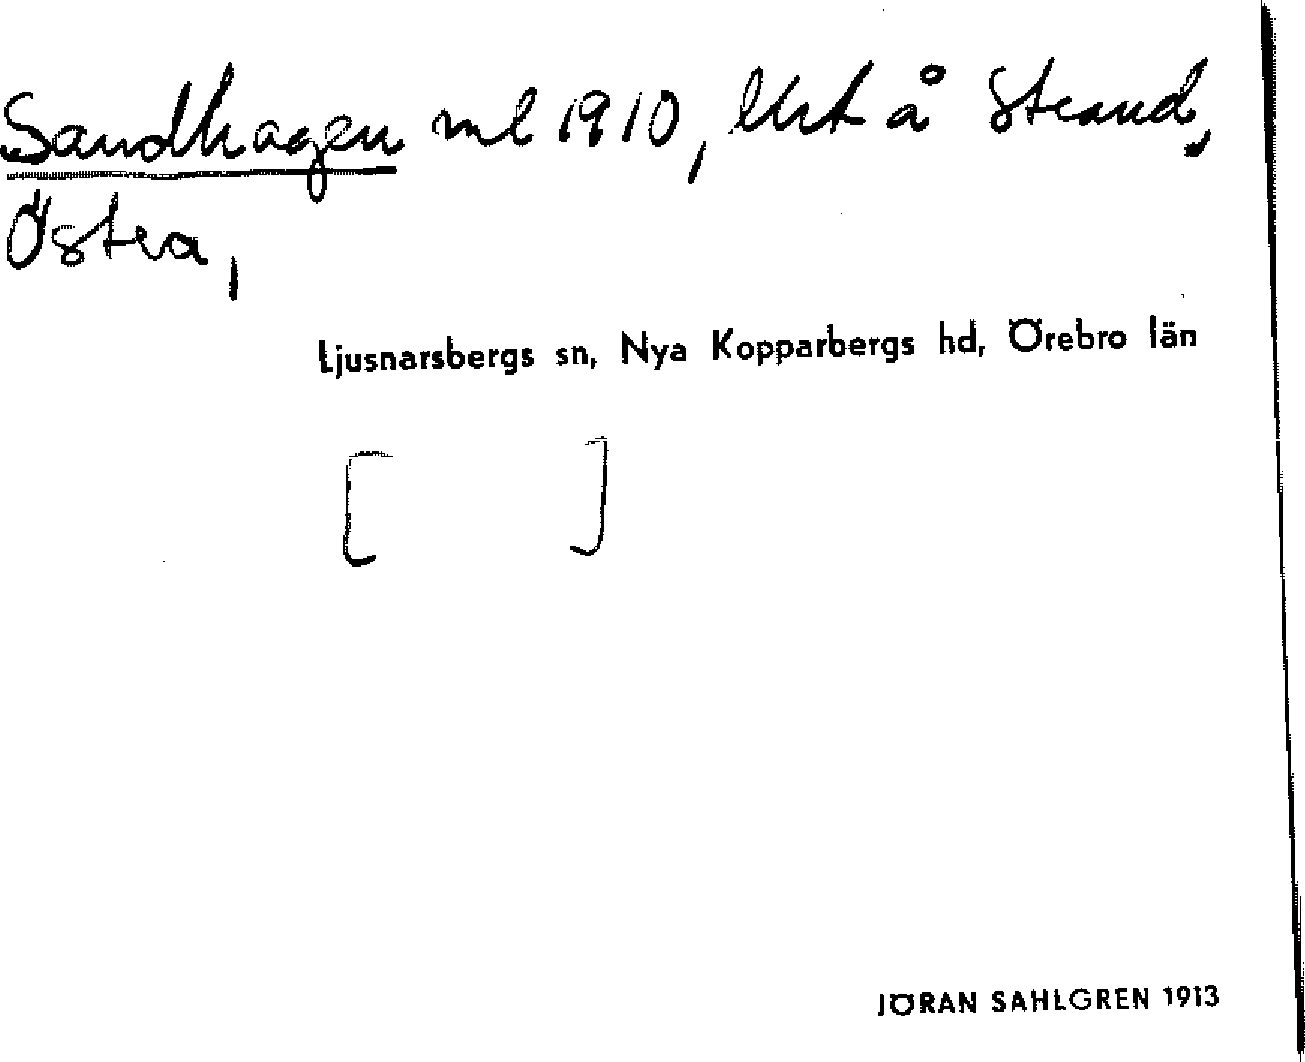 Sandhagen ml 1910, lht å Strand,
Östra,
Ljusnarsbergs sn, Nya Kopparbergs hd, Örebro län
[ ]
JÖRAN SAHLGREN 1913